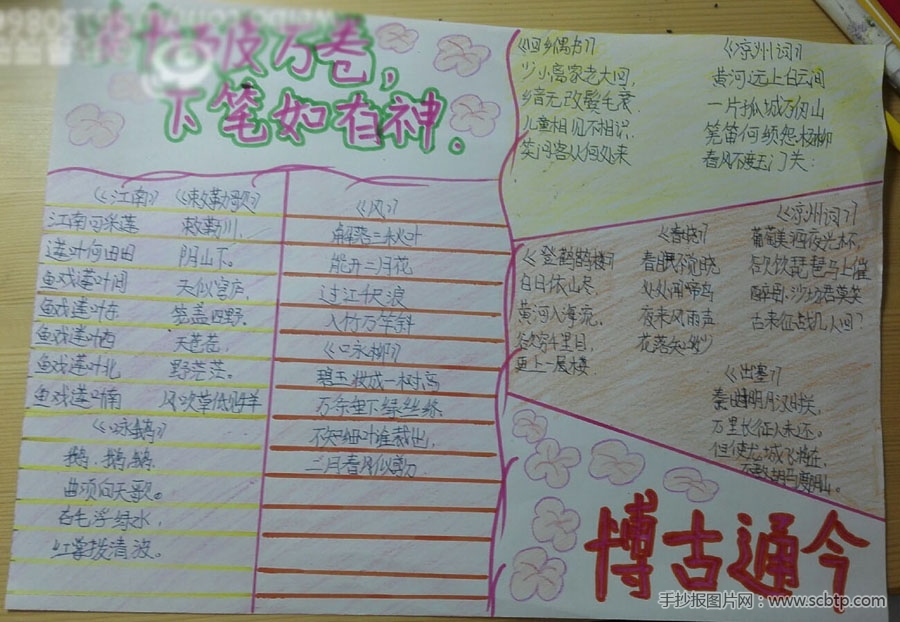 破万卷，
下笔如有神。
《江南》
江南可采莲
莲叶何田田
鱼戏莲叶间
鱼戏莲叶东
鱼戏莲叶西
鱼戏莲叶北
鱼戏莲叶南
《敕勒歌》
敕勒川，
阴山下。
天似穹庐，
笼盖四野。
天苍苍，
野茫茫。
风吹草低见牛羊
《咏鹅》
鹅，鹅，鹅，
曲项向天歌。
白毛浮绿水，
红掌拨清波。
《风》
解落三秋叶
能开二月花
过江千尺浪
入竹万竿斜
《咏柳》
碧玉妆成一树高
万条垂下绿丝绦
不知细叶谁裁出，
二月春风似剪刀
《回乡偶书》
少小离家老大回，
乡音无改鬓毛衰
儿童相见不相识，
笑问客从何处来
《凉州词》
黄河远上白云间
一片孤城万仞山
笔笛何须怨杨柳
春风不度玉门关
《登鹳鹊楼》
白日依山尽，
黄河入海流，
欲穷千里目，
更上一层楼
《春晓》
春眠不觉晓
处处闻啼鸟
夜来风雨声
花落知多少
《凉州词》
葡萄美酒夜光杯，
欲饮琵琶马上催
醉卧沙场君莫笑
古来征战几人回？
《出塞》
秦时明月汉时关，
万里长征人未还。
但使龙城飞将在，
不教胡马度阴山。
博古通今
手抄报图片网：www.scbtp.com